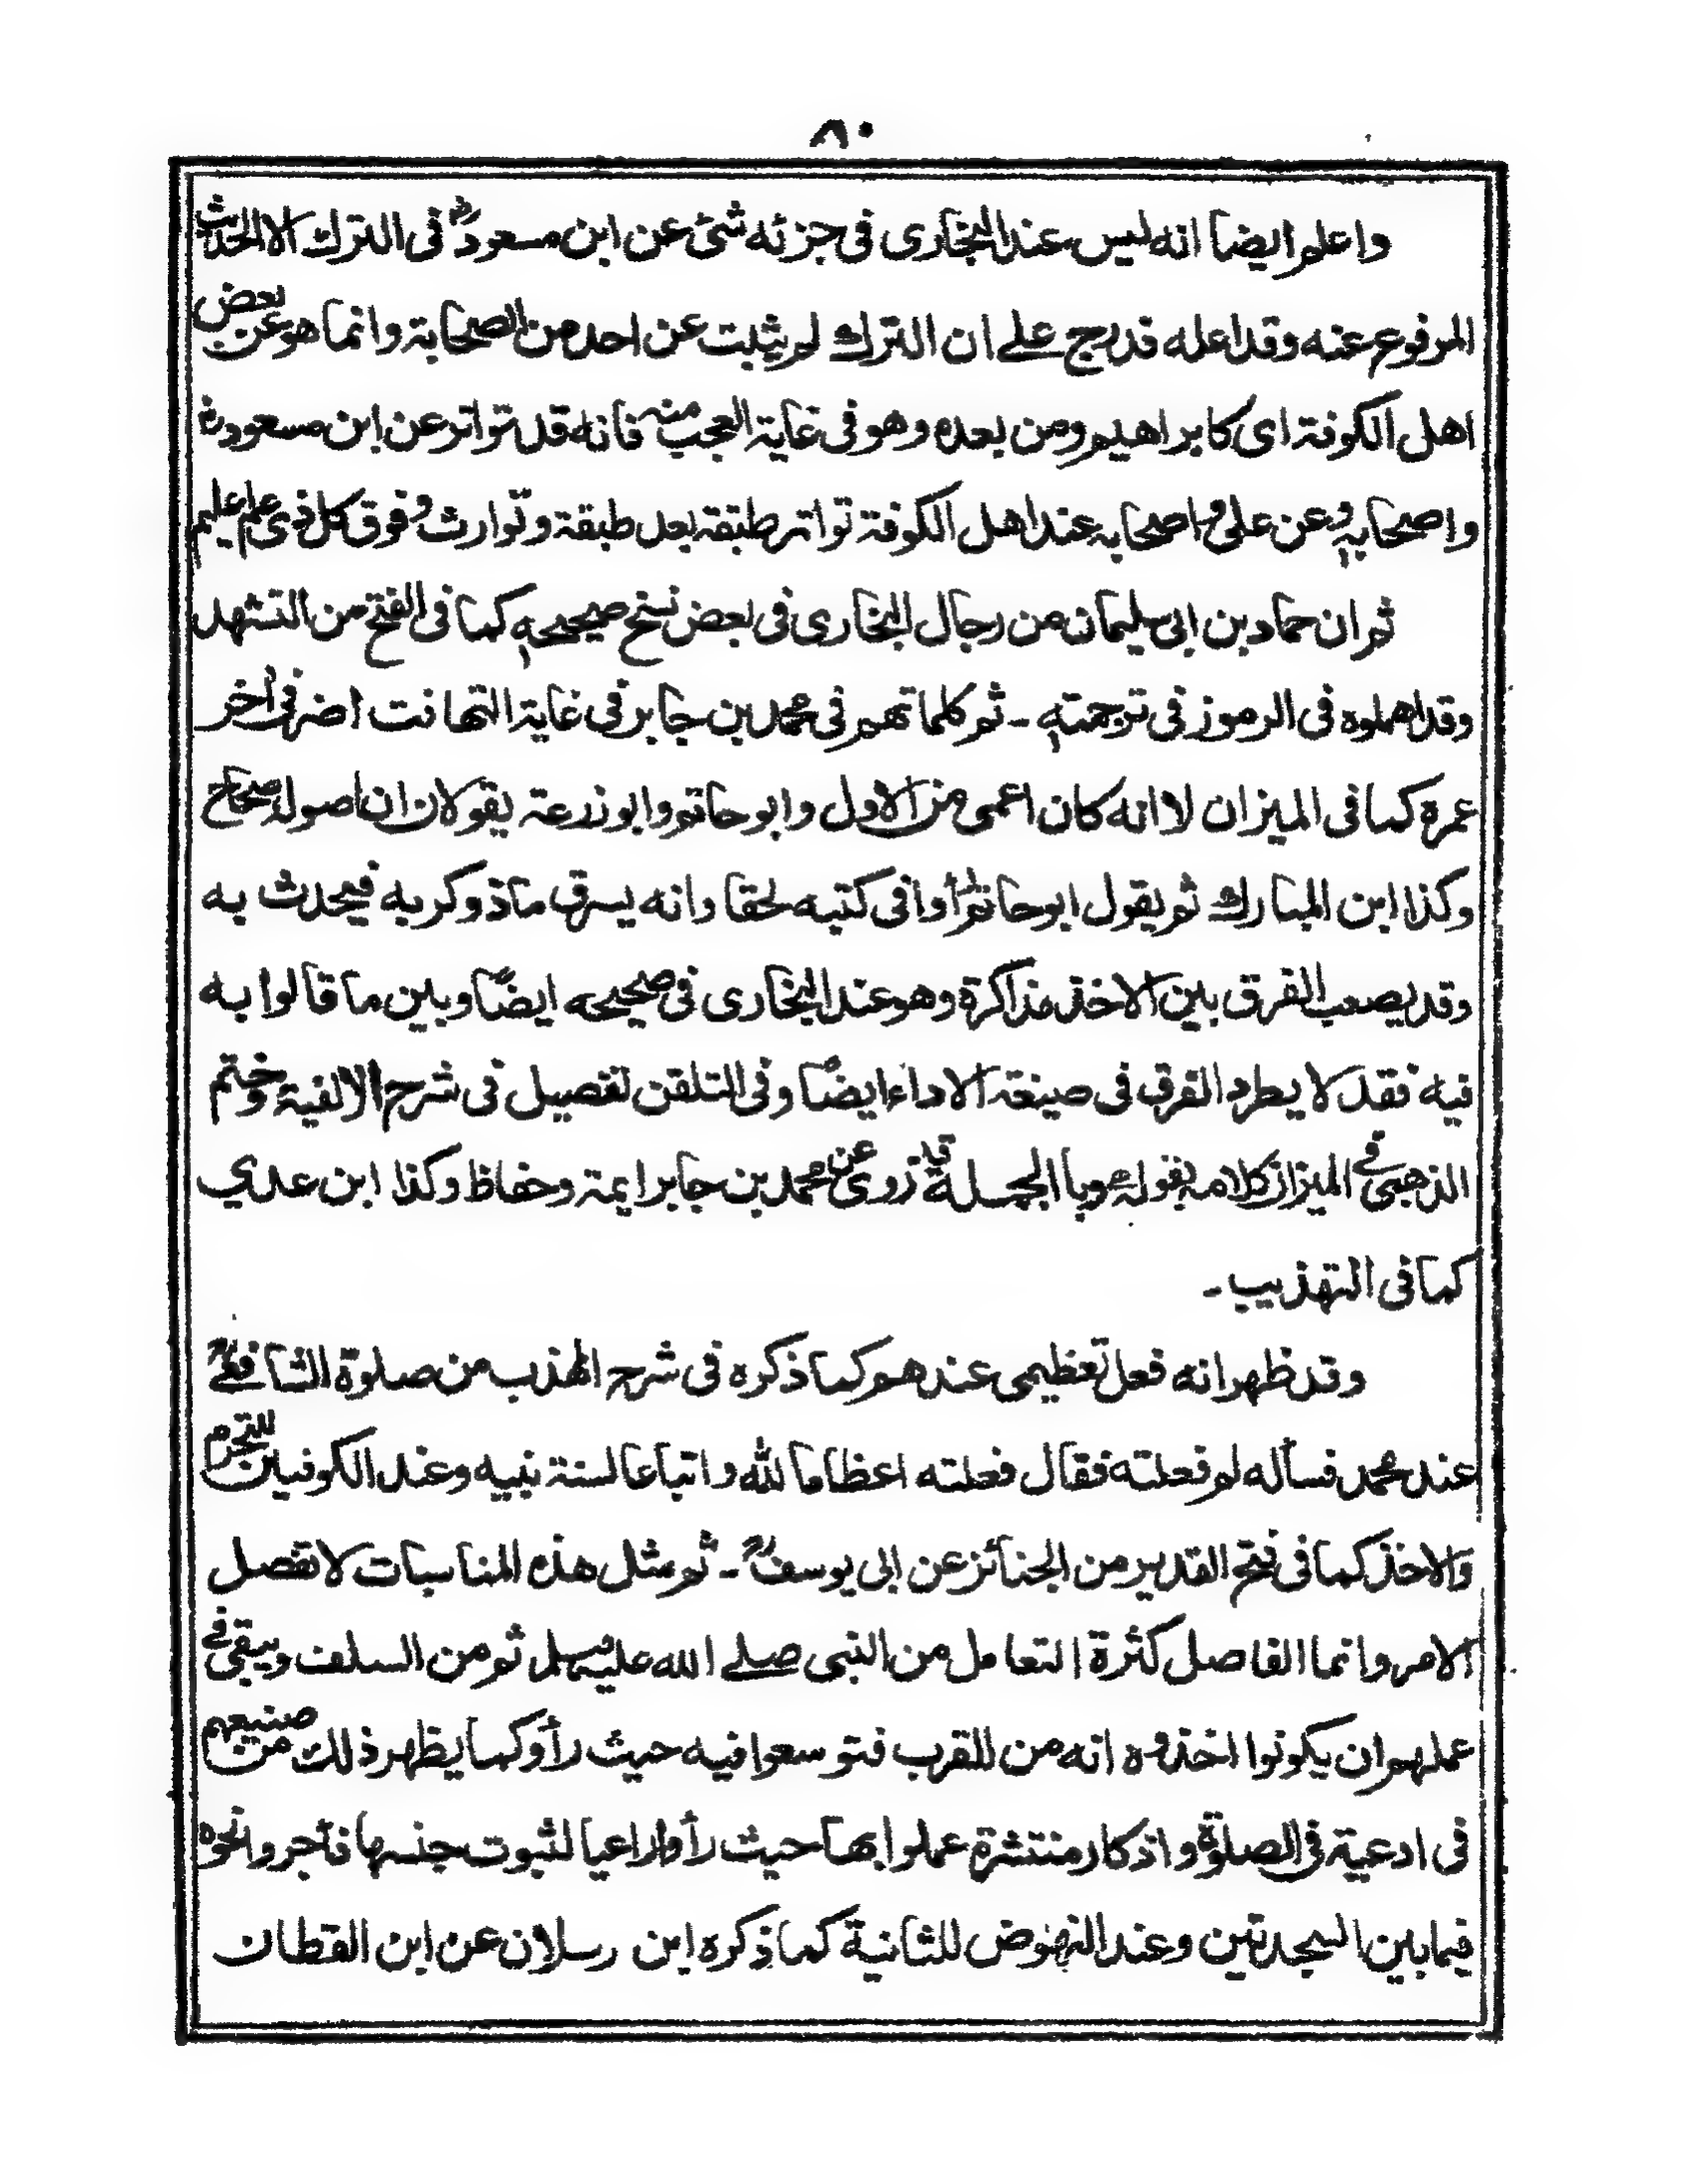 ٨٠
واعلم ايضا انه ليس عند البخارى فى جزئه شئ عن ابن مسعودؓ فى الترك الا الحديث
المرفوع عنه وقد اعله قد رج على ان الترك لم يثبت عن احد من الصحابة وانما هو عن بعض
اهل الكوفة اى كابراهيم ومن بعده وهو فى غاية العجب منه فانه قد تواتر عن ابن مسعودؓ
واصحابه وعن على واصحابه عند اهل الكوفة تواتر طبقة بعد طبقة وتوارث وفوق كل ذى علم عليم
ثم ان حماد بن ابى سليمان من رجال البخارى فى بعض نسخ صحيحه كما فى الفتح من التشهد
وقد اهملوه فى الرموز فى ترجمته ـ ثم كلماتهم فى محمد بن جابر فى غاية التهافت أضر فى اخر
عمرة كما فى الميزان لا انه كان اعمى من الاول وابو حاتم وابو زرعة يقولان ان اصوله صحاح
وكذا ابن المبارك ثم يقول ابو حاتم رأوا فى كتبه لحقا وانه يسرق ما ذوكر به فيحدث به
وقد يصعب الفرق بين الاخذ مذاكرة وهو عند البخارى فى صحيحه ايضًا وبين ما قالوا به
فيه فقد لا يطرد الفرق فى صيغة الاداء ايضًا وفى التلقن تفصيل فى شرح الالفية وختم
الذهبى فى الميزان كلامه بقوله وبالجملة قد روى عن محمد بن جابر ايمة وحفاظ وكذا ابن عدي
كما فى التهذيب ـ
وقد ظهر انه فعل تعظيمى عندهم كما ذكره فى شرح المهذب من صلوة الشافعىؒ
عند محمد فسأله لم فعلته فقال فعلته اعظاما لله واتباعا لسنة نبيه وعند الكوفيين للتحرم
والاخذ كما فى فتح القدير من الجنائز عن ابى يوسفؒ ـ ثم مثل هذه المناسبات لا تفصل
الامر وانما الفاصل كثرة التعامل من النبى صلى الله عليه وسلم ثم من السلف ويبقى فى
عملهم ان يكونوا اخذوه انه من للقرب فتوسعوا فيه حيث رأوكما يظهر ذلك من صنيعهم
فى ادعية فى الصلوة واذكار منتشرة عملوا بها حيث رأوا داعيا لثبوت جنسها فأجروا نحوه
فيما بين السجدتين وعند النهوض للثانية كما ذكره ابن رسلان عن ابن القطان